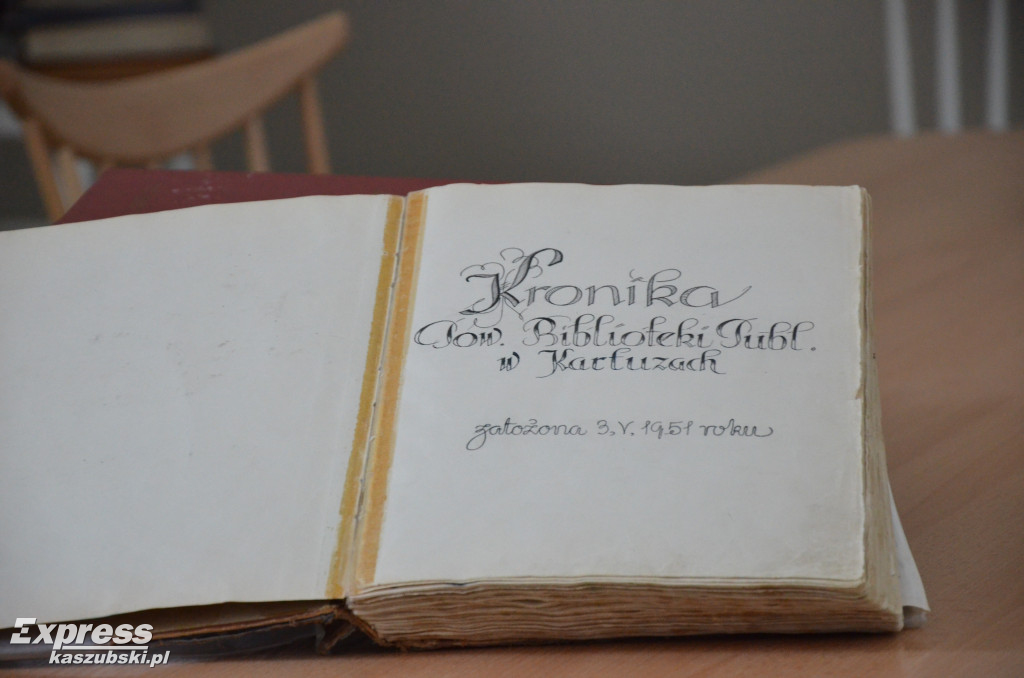 Kronika
Pow. Biblioteki Publ.
w Kartuzach
założona 3.V.1951 roku
Express
kaszubski.pl